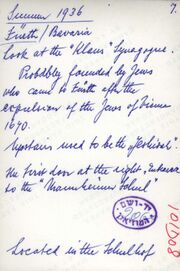 Summer 1936
7.
Fürth/Bavaria
Look at the "Klaus" Synagogue.
Probably founded by Jews
who came to Fürth after the
expulsion of the Jews of Vienna
1670.
Upstairs used to be the "Yeshivah".
The first door at the right, Entrance
to the "Mannheimer Schul"
יד-ושם
Located in the Schulhof